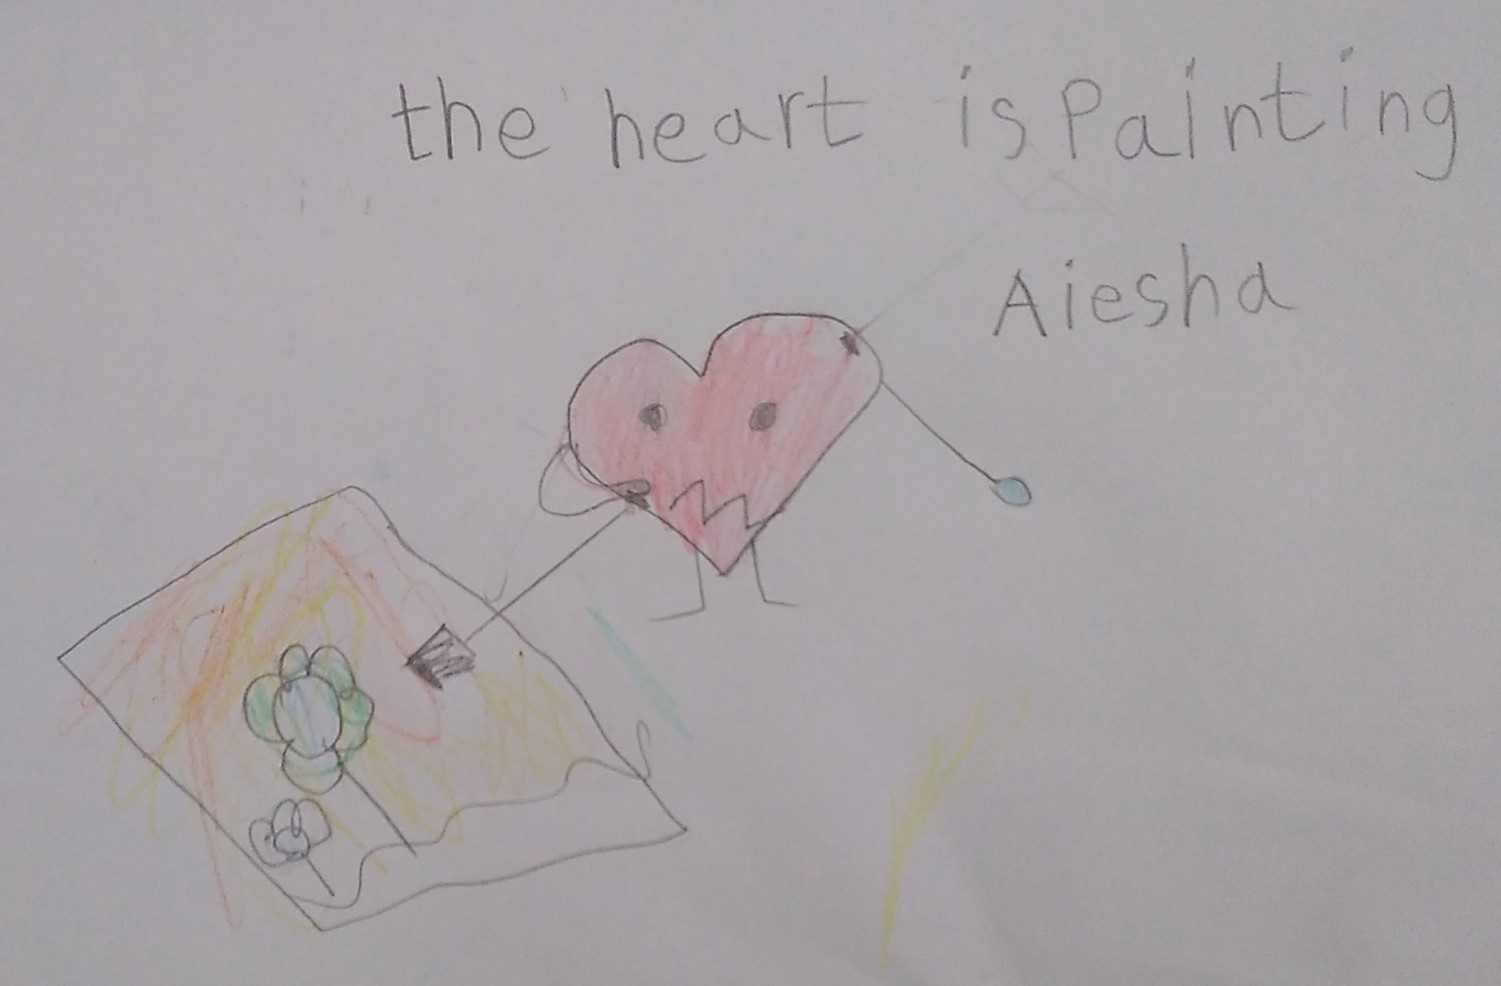 the heart is Painting
Aiesha